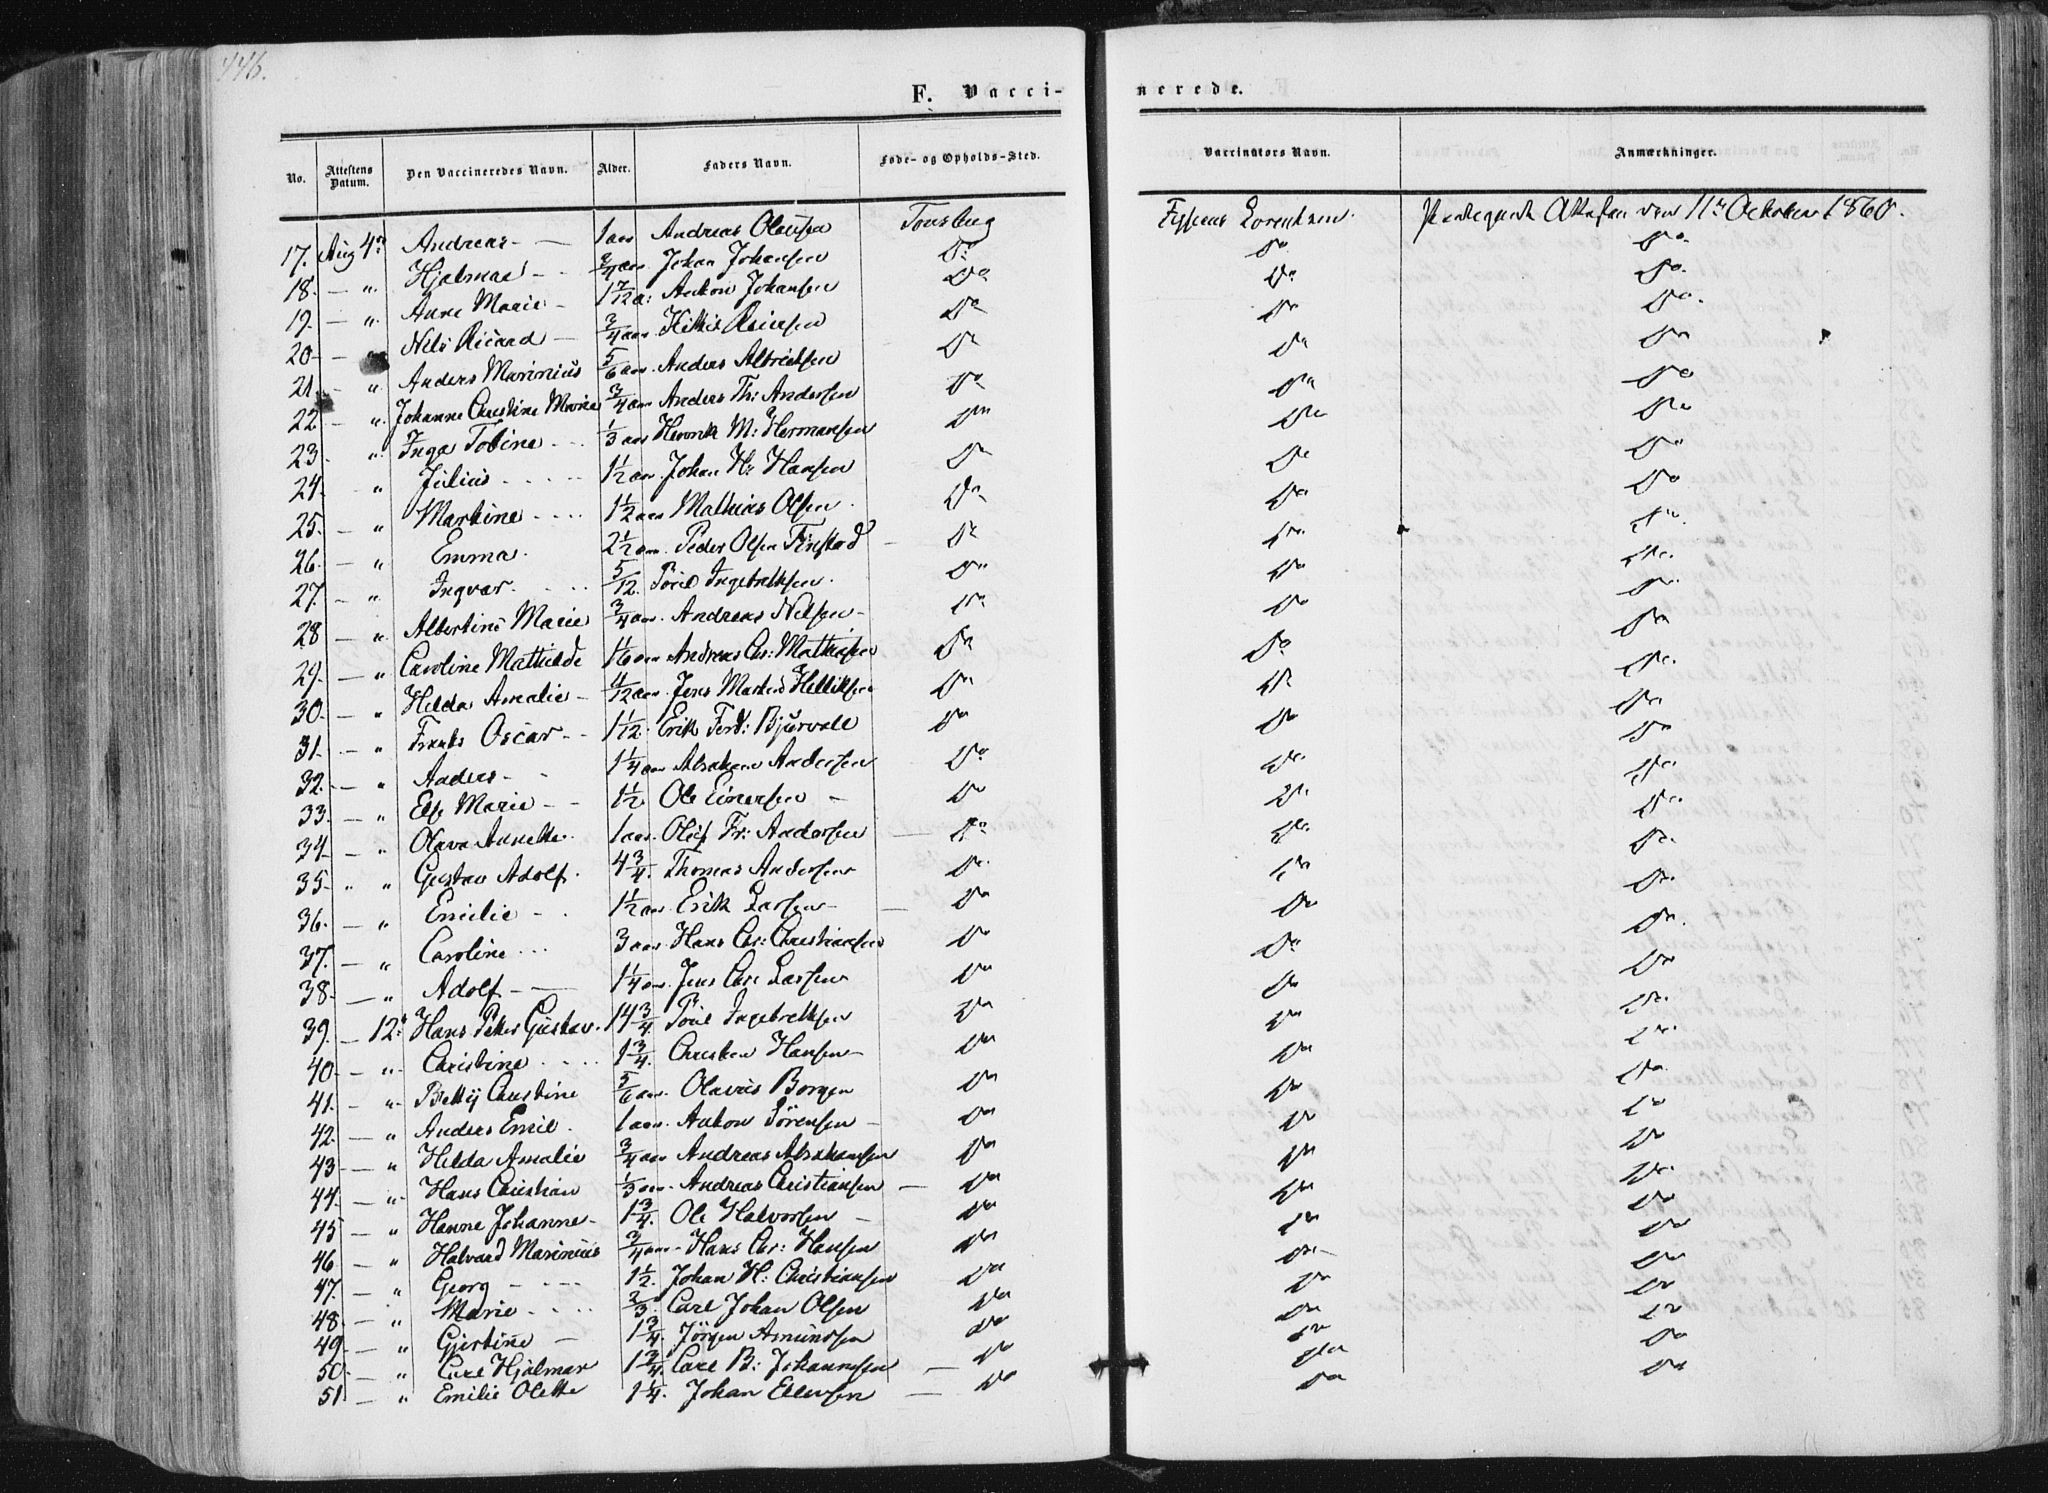 446.
F. Vacci-
nerede.
No. Attestens Datum. Den Vaccineredes Navn. Alder. Faders Navn. Føde- og Opholds-Sted. Vaccinators Navn. Anmærkninger.
17. Aug 4de Andreas 1 aar Andreas Olausen Tønsberg Lorentzen. Attester den 11te October 1860.
18. — " Hjalmar 3/4 aar. Johan Johansen Do Do Do
19. — " Anne Marie 1 7/12 a: Anton Johansen Do Do Do
20 — Nels Ricard 3/4 aar. Do Do Do
21. — " Anders Marinius 5/6 aar. Anders Albretsen Do Do Do
22 " Johanne Christine Marie 3/4 aar Anders Th: Andersen Do Do Do
23. " Inga Tobine 1/3 aar Henrik M: Hermansen Do Do Do
24. " Julius 1 1/2 aar. Johan H: Hansen Do Do Do
25. — " Martine 1 1/2 aar Mathias Olsen Do Do Do
26. — " Emma. 2 1/2 aar. Peder Olsen Finstad — Do Do Do
27. — " Ingvar. 5/12. Poul Ingebretsen. Do Do Do
28 — " Albertine Marie 3/4 aar. Andreas Nilsen — Do Do Do
29. — " Caroline Mathilde 1 1/6 aar Andreas Chr: Mathisen Do Do Do
30. — " Hilda Amalie 11/12 aar. Jens Martin Helliksen Do Do Do
31. — " Frants Oscar 1 1/12. Erik Ferd: Bjurvall Do Do Do
32. — " Anders 1 1/4 aar Abraham Andersen Do Do Do
33. — " Else Marie 1 1/2 Ole Einersen — Do Do Do
34. — " Olava Annette 1 aar. Oluf Fr: Andersen — Do Do Do
35. " " Gustav Adolf. 4 3/4. Thomas Andersen Do Do Do
36. — " Emilie 1 1/2 aar Erik Larsen — Do Do Do
37. — " Caroline 3 aar Hans Chr: Christiansen Do Do Do
38. — " Adolf 1 1/4 aar. Jens Chr Larsen Do Do Do
39. — 12te Hans Peter Gustav. 14 3/4. Poul Ingebretsen Do Do Do
40 — " Christine 1 3/4. Christen Hansen Do Do Do
41. — " Betty Christine 5/6 aar. Olavus Borgen Do Do Do
42. — " Anders Emil. 1 aar. Anton Sörensen — Do Do Do
43 — " Hilda Amalie 3/4 aar Andreas Abrahamsen Do Do Do
44. — " Hans Christian 1/3 aar. Andreas Christiansen — Do Do Do
45 — " Hanne Johanne 1 3/4. Ole Halvorsen — Do Do Do
46. — " Halvard Marinius 3/4 aar. Hans Chr: Hansen Do Do Do
47. — " Georg 1 1/2. Johan H: Christiansen Do Do Do
48. — " Marie 2/3. Carl Johan Olsen Do Do Do
49. — " Gjertine 1 3/4. Jörgen Amundsen Do Do Do
50. — " Carl Hjalmar 1 3/4. Carl B: Johannesen — Do Do Do
51. — " Emilie Olette 1 1/4. Johan Ellevsen — Do Do Do